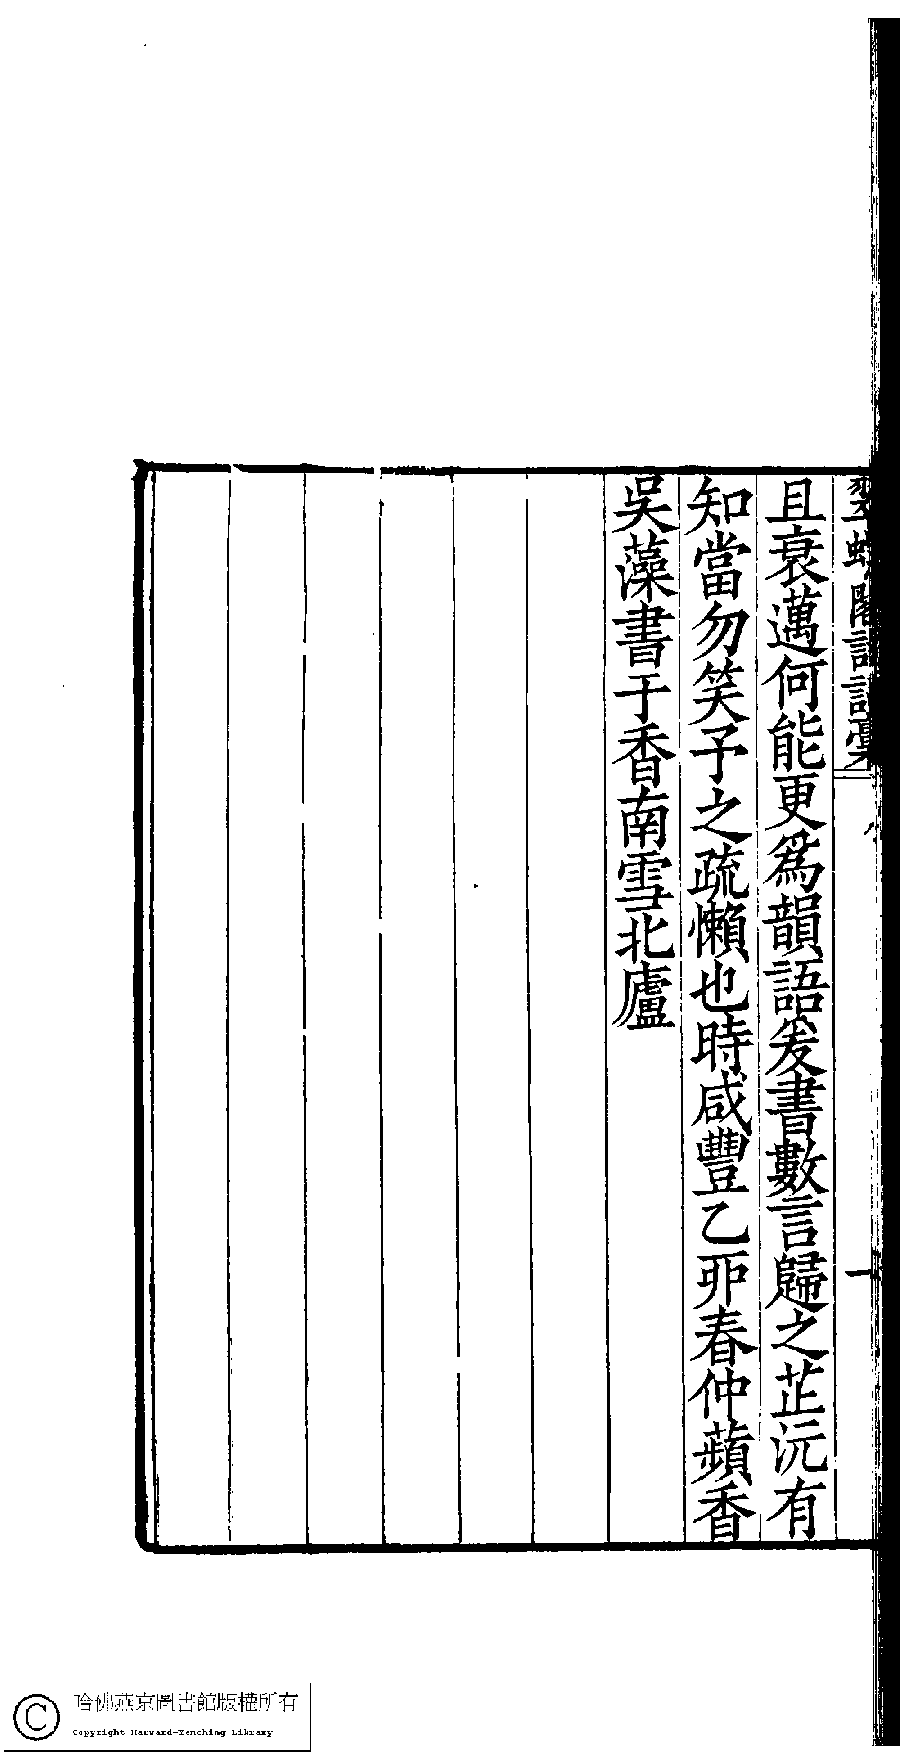 翠螺閣詩詞稾
一
且衰邁何能更爲韻語爰書數言歸之芷沅有
知當勿笑予之疏懶也時咸豐乙夘春仲蘋香
吳藻書于香南雪北廬
哈佛燕京圖書館版權所有
Copyright Harvard-Yenching Library